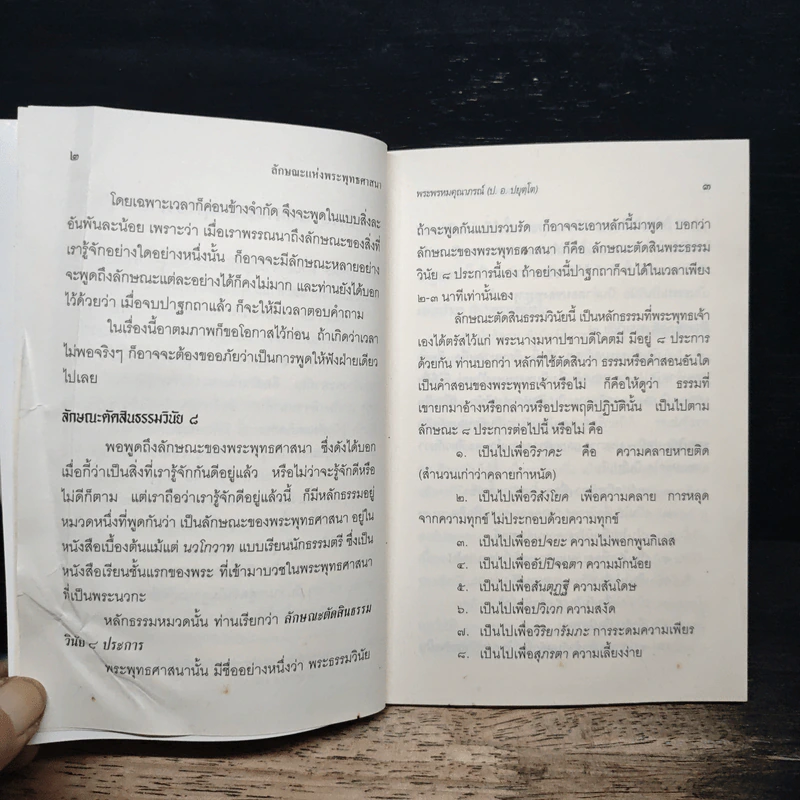 ๒
ลักษณะแห่งพระพุทธศาสนา
โดยเฉพาะเวลาก็ค่อนข้างจำกัด จึงจะพูดในแบบสิ่งละ
อันพันละน้อย เพราะว่า เมื่อเราพรรณนาถึงลักษณะของสิ่งที่
เรารู้จักอย่างใดอย่างหนึ่งนั้น ก็อาจจะมีลักษณะหลายอย่าง
จะพูดถึงลักษณะแต่ละอย่างได้ก็คงไม่มาก และท่านยังได้บอก
ไว้ด้วยว่า เมื่อจบปาฐกถาแล้ว ก็จะให้มีเวลาตอบคำถาม
ในเรื่องนี้อาตมภาพก็ขอโอกาสไว้ก่อน ถ้าเกิดว่าเวลา
ไม่พอจริงๆ ก็อาจจะต้องขออภัยว่าเป็นการพูดให้ฟังฝ่ายเดียว
ไปเลย
ลักษณะตัดสินธรรมวินัย ๘
พอพูดถึงลักษณะของพระพุทธศาสนา ซึ่งดังได้บอก
เมื่อกี้ว่าเป็นสิ่งที่เรารู้จักกันดีอยู่แล้ว หรือไม่ว่าจะรู้จักดีหรือ
ไม่ดีก็ตาม แต่เราถือว่าเรารู้จักดีอยู่แล้วนี้ ก็มีหลักธรรมอยู่
หมวดหนึ่งที่พูดกันว่า เป็นลักษณะของพระพุทธศาสนา อยู่ใน
หนังสือเบื้องต้นแม้แต่ นวโกวาท แบบเรียนนักธรรมตรี ซึ่งเป็น
หนังสือเรียนชั้นแรกของพระ ที่เข้ามาบวชในพระพุทธศาสนา
ที่เป็นพระนวกะ
หลักธรรมหมวดนั้น ท่านเรียกว่า ลักษณะตัดสินธรรม
วินัย ๘ ประการ
พระพุทธศาสนานั้น มีชื่ออย่างหนึ่งว่า พระธรรมวินัย
พระพรหมคุณาภรณ์ (ป. อ. ปยุตฺโต)
๓
ถ้าจะพูดกันแบบรวบรัด ก็อาจจะเอาหลักนี้มาพูด บอกว่า
ลักษณะของพระพุทธศาสนา ก็คือ ลักษณะตัดสินพระธรรม
วินัย ๘ ประการนี้เอง ถ้าอย่างนี้ปาฐกถาก็จบได้ในเวลาเพียง
๒-๓ นาทีเท่านั้นเอง
ลักษณะตัดสินธรรมวินัยนี้ เป็นหลักธรรมที่พระพุทธเจ้า
เองได้ตรัสไว้แก่ พระนางมหาปชาบดีโคตมี มีอยู่ ๘ ประการ
ด้วยกัน ท่านบอกว่า หลักที่ใช้ตัดสินว่า ธรรมหรือคำสอนอันใด
เป็นคำสอนของพระพุทธเจ้าหรือไม่ ก็คือให้ดูว่า ธรรมที่
เขายกมาอ้างหรือกล่าวหรือประพฤติปฏิบัตินั้น เป็นไปตาม
ลักษณะ ๘ ประการต่อไปนี้ หรือไม่ คือ
๑. เป็นไปเพื่อวิราคะ คือ ความคลายหายติด
(สำนวนเก่าว่าคลายกำหนัด)
๒. เป็นไปเพื่อวิสังโยค เพื่อความคลาย การหลุด
จากความทุกข์ ไม่ประกอบด้วยความทุกข์
๓. เป็นไปเพื่ออปจยะ ความไม่พอกพูนกิเลส
๔. เป็นไปเพื่ออัปปิจฉตา ความมักน้อย
๕. เป็นไปเพื่อสันตุฏฐี ความสันโดษ
๖. เป็นไปเพื่อปวิเวก ความสงัด
๗. เป็นไปเพื่อวิริยารัมภะ การระดมความเพียร
๘. เป็นไปเพื่อสุภรตา ความเลี้ยงง่าย